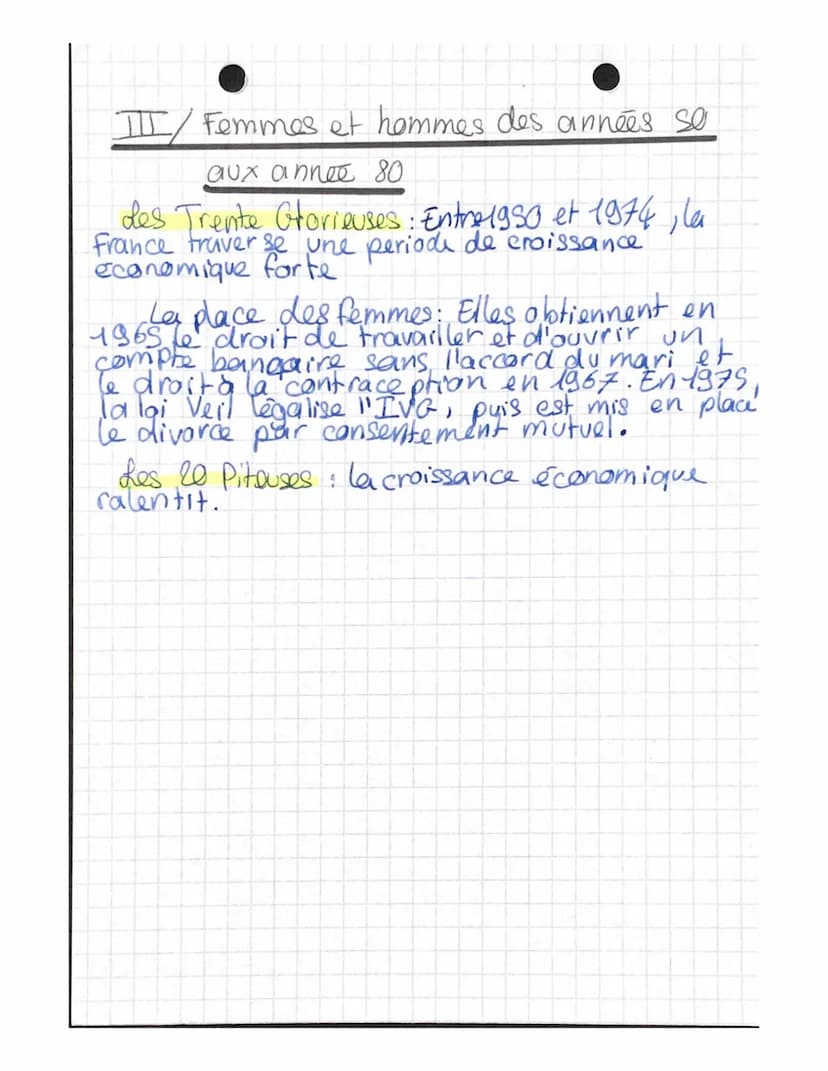 III/ Femmes et hommes des années 50
aux année 80
Les Trente Glorieuses : Entre 1950 et 1974, la
France traverse une periode de croissance
économique forte
La place des femmes : Elles obtiennent en
1965 le droit de travailler et d'ouvrir un
compte banquaire sans l'accord du mari et
le droit à la contraception en 1967. En 1975,
la loi Veil légalise l'IVG, puis est mis en place
le divorce par consentement mutuel.
Les 20 Piteuses : la croissance économique
ralentit.